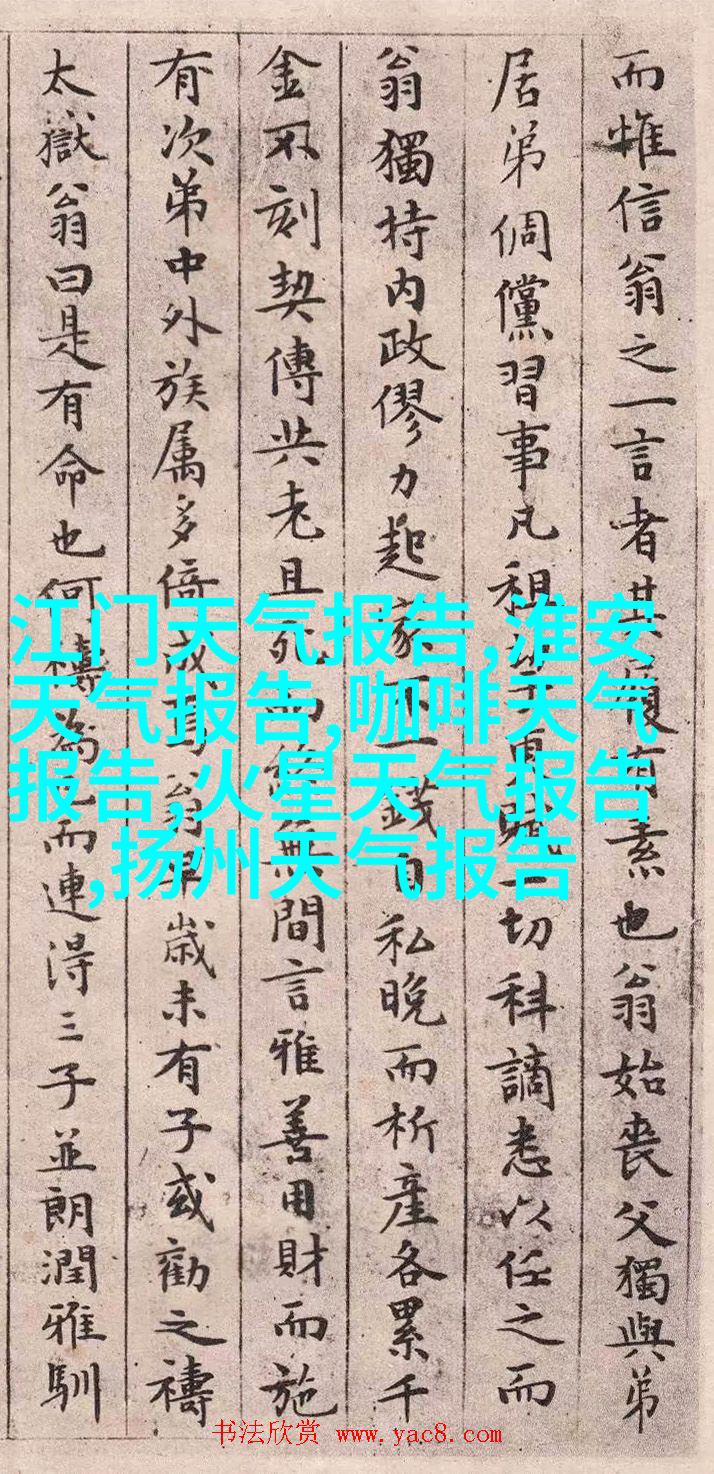 而惟信翁之一言者其負有素也翁始喪父獨與弟
居弟倜儻習事凡租更賦一切科謫悉以任之而
翁獨持内政僇力起家不一錢自私晚而析產各累千
金不刻契傳共老且死而無間言雅善用財而施
有次弟中外族属多倚成焉翁早歲未有子或勸之禱
太嶽翁曰是有命也何禱為已而連得三子並朗潤雅馴
江门天气报告,淮安
天气报告,咖啡天气
报告,火星天气报告
,扬州天气报告
书法欣赏 www.yac8.com